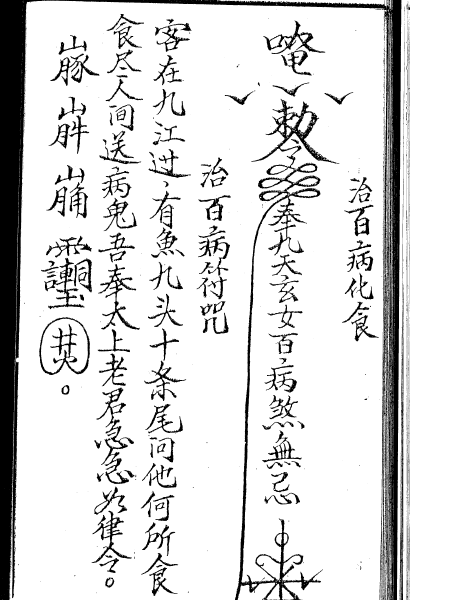 治百病化食
唵
敕令奉九天玄女百病煞無忌
治百病符咒
客在九江过、有魚九头十条尾问他何所食
食尽人间送病鬼吾奉太上老君急急如律令。